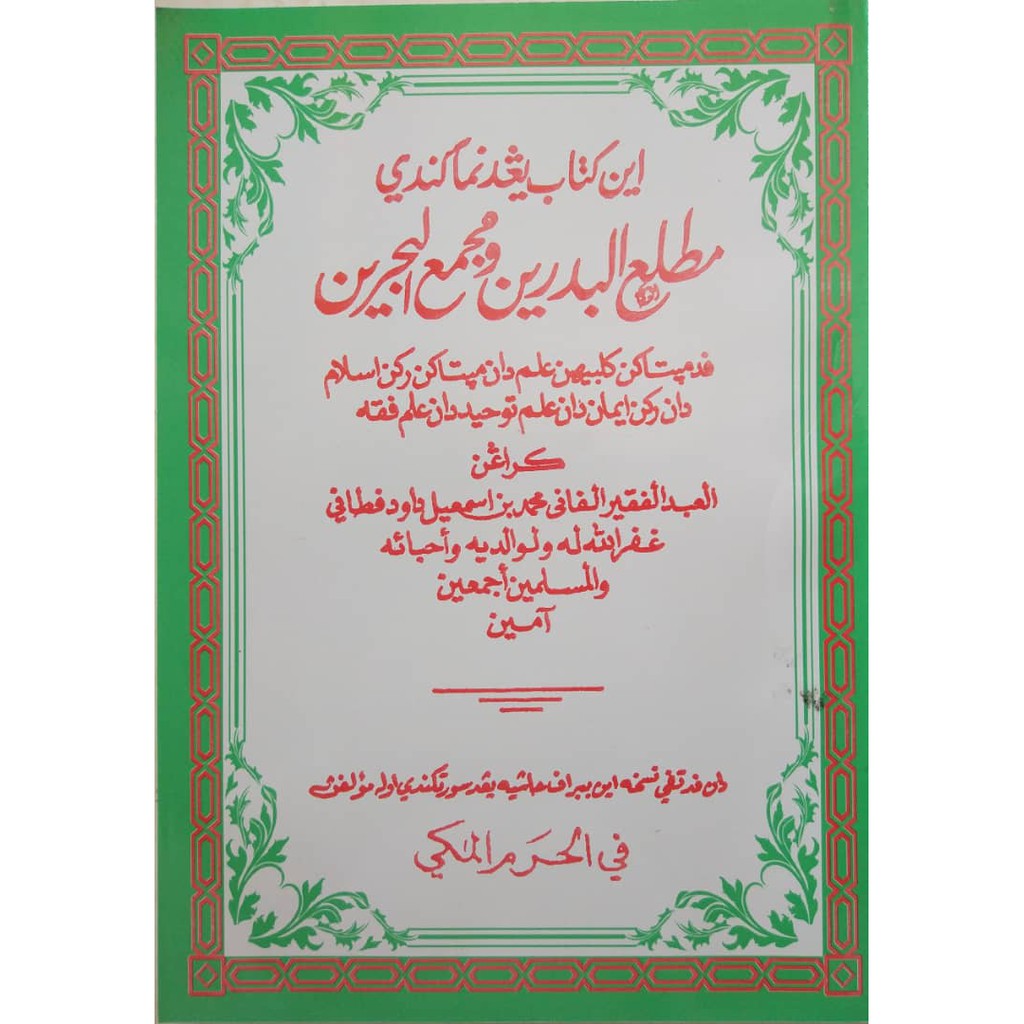 اين كتاب يڠدنماكندي
مطلع البدرين ومجمع البحرين
فد مپتاكن كلبيهن علم دان مپتاكن ركن اسلام
دان ركن ايمان دان علم توحيد دان علم فقه
كراڠن
العبد الفقير الفاني محمد بن اسمعيل داود فطاني
غفر الله له ولوالديه وأحبائه
والمسلمين أجمعين
آمين
دان فد تفي نسخه اين ببراف حاشيه يڠدسورتكندي اوله مؤلفڽ
في الحرم المكي